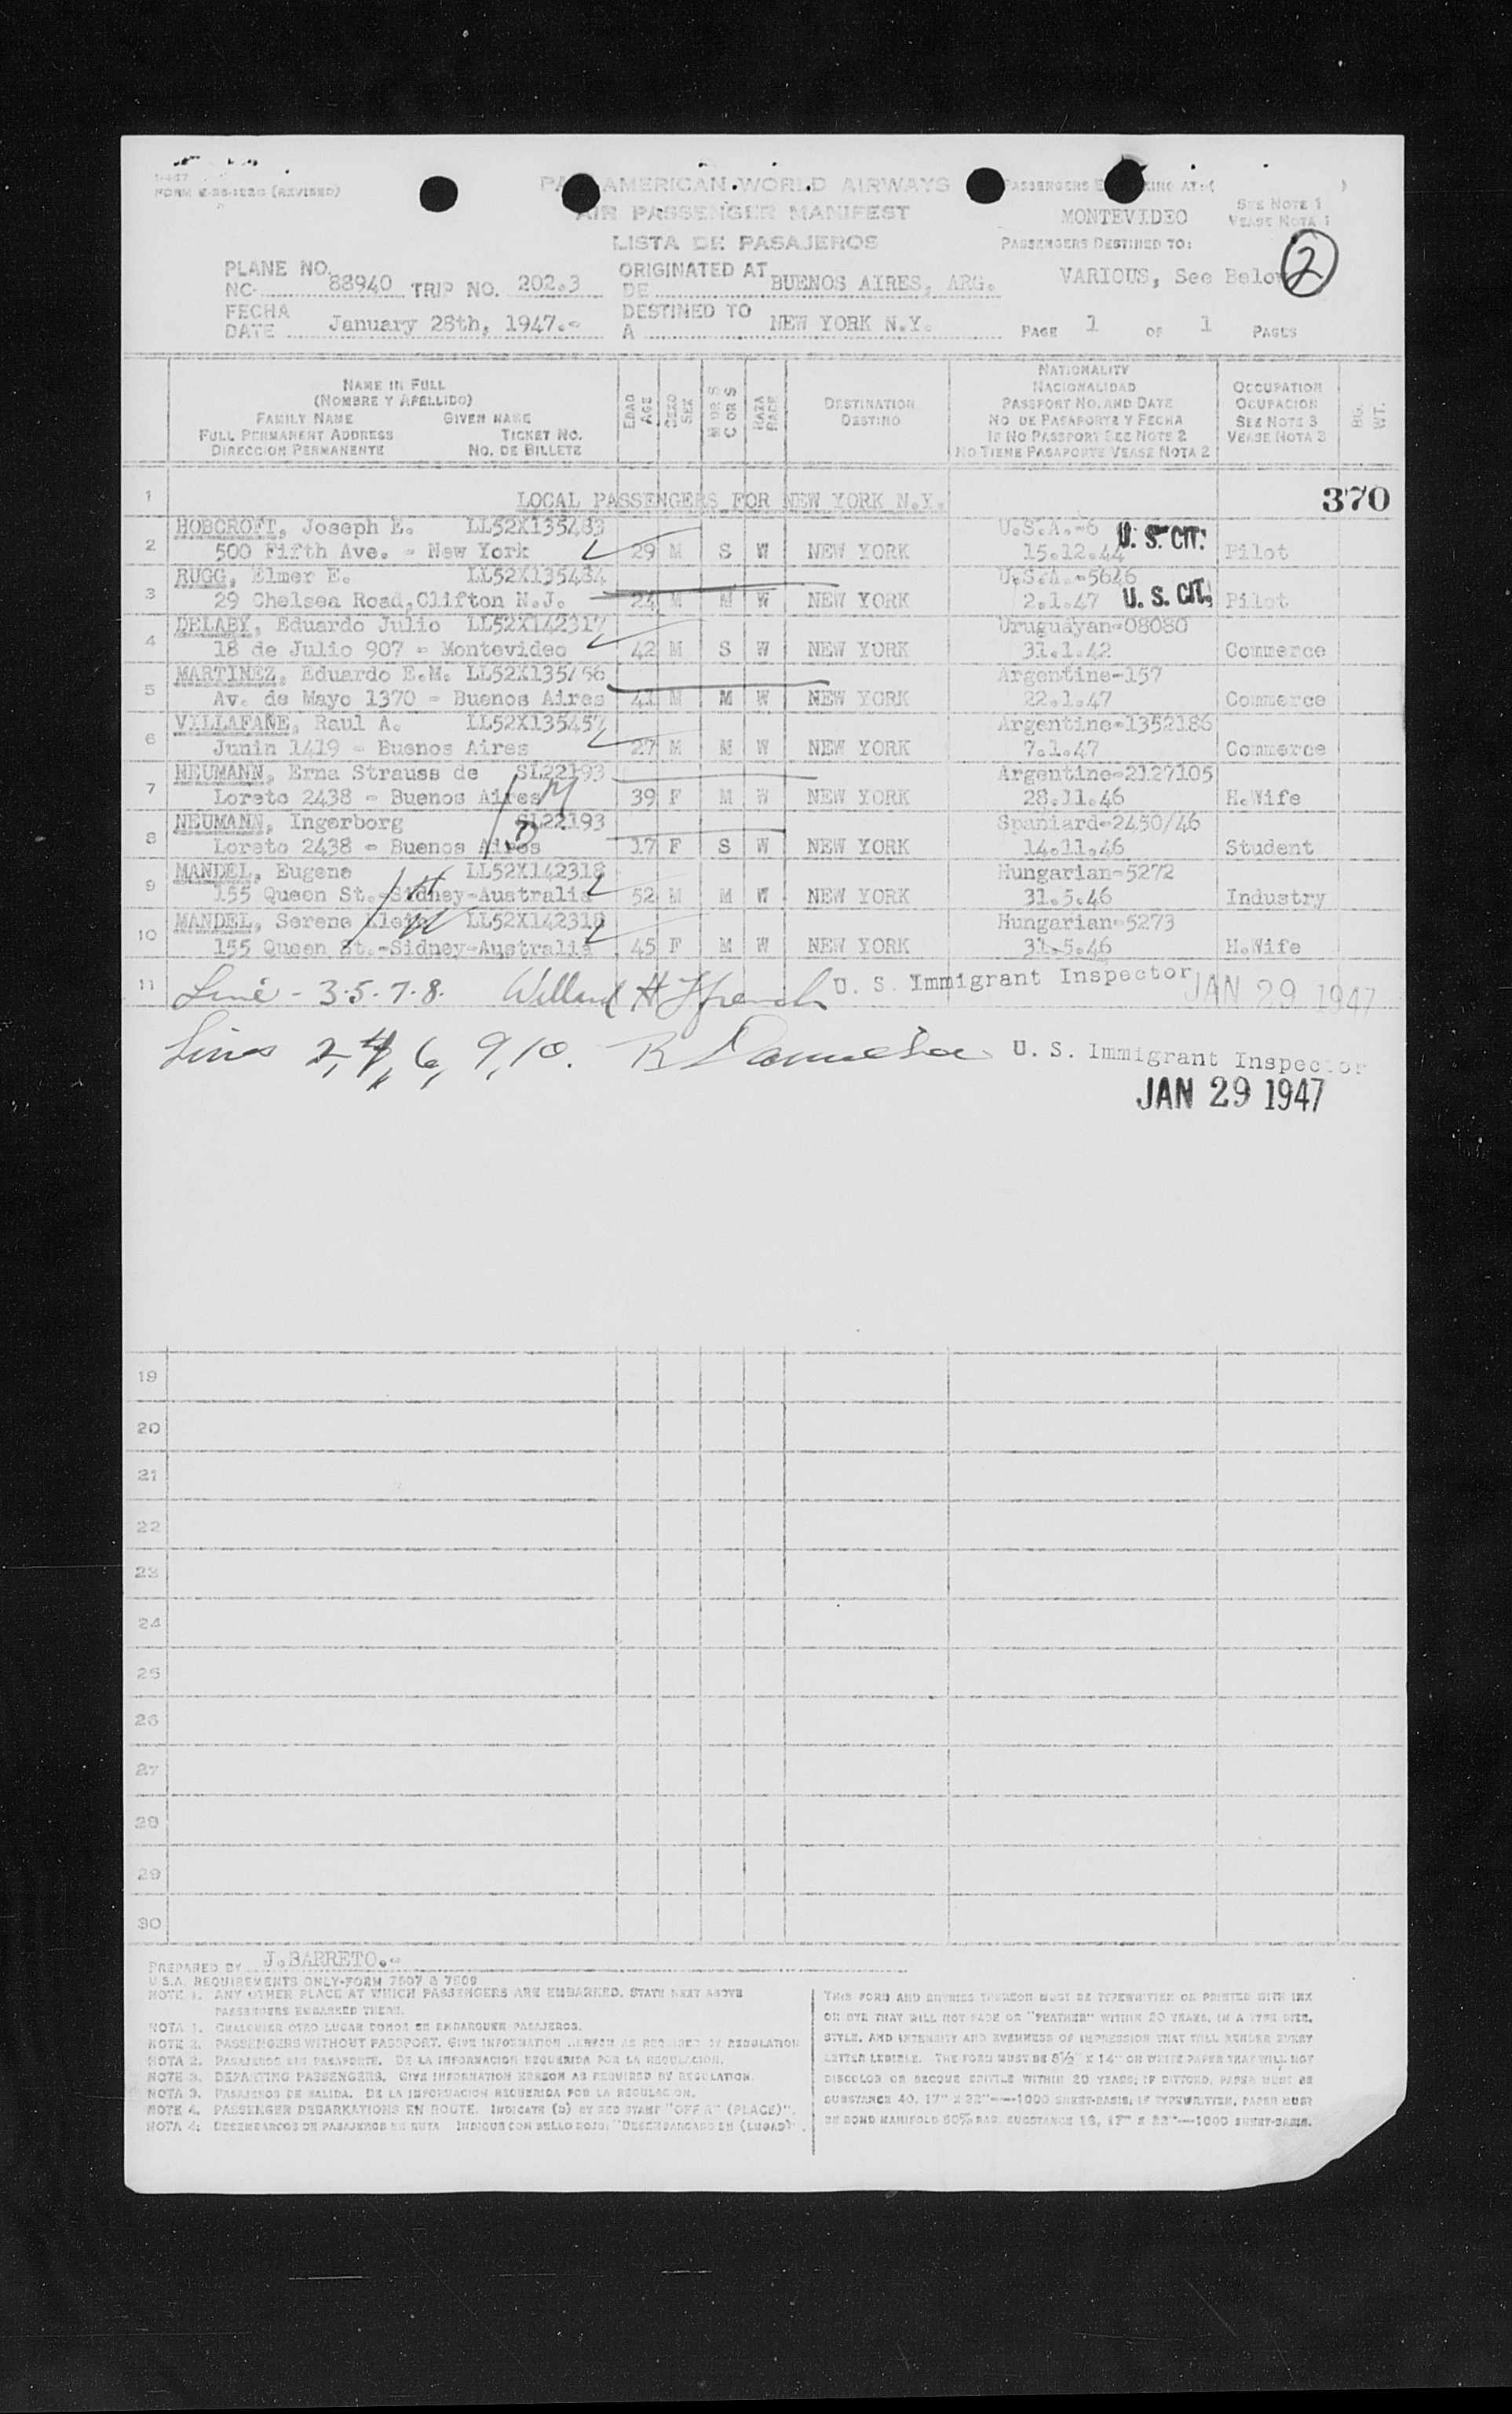 FORM E-26-1020 (REVISED)
PAN AMERICAN WORLD AIRWAYS
AIR PASSENGER MANIFEST
LISTA DE PASAJEROS
PASSENGERS EMBARKING AT: ( )
MONTEVIDEO
SEE NOTE 1
VEASE NOTA 1
PASSENGERS DESTINED TO:
VARIOUS, See Below
2
PLANE NO.
NO. 88940 TRIP NO. 202.3
ORIGINATED AT
DE BUENOS AIRES, ARG.
FECHA
DATE January 28th, 1947.-
DESTINED TO
A NEW YORK N.Y.
PAGE 1 OF 1 PAGES
NAME IN FULL
(NOMBRE Y APELLIDO)
FAMILY NAME GIVEN NAME
FULL PERMANENT ADDRESS TICKET NO.
DIRECCION PERMANENTE NO. DE BILLETE
EDAD AGE
SEXO SEX
M OR S C OR S
RAZA RACE
DESTINATION
DESTINO
NATIONALITY
NACIONALIDAD
PASSPORT NO. AND DATE
NO DE PASAPORTE Y FECHA
IF NO PASSPORT SEE NOTE 2
NO TIENE PASAPORTE VEASE NOTA 2
OCCUPATION
OCUPACION
SEE NOTE 3
VEASE NOTA 3
BG. WT.
1 LOCAL PASSENGERS FOR NEW YORK N.Y. 370
HOBCROFT, Joseph E. LL52X135483 U.S.A.-6 U. S. CIT.
2 500 Fifth Ave. - New York 29 M S W NEW YORK 15.12.44 Pilot
RUGG, Elmer E. LL52X135484 U.S.A.-5646
3 29 Chelsea Road,Clifton N.J. 24 M M W NEW YORK 2.1.47 U. S. CIT. Pilot
DELABY, Eduardo Julio LL52X142317 Uruguayan-08080
4 18 de Julio 907 - Montevideo 42 M S W NEW YORK 31.1.42 Commerce
MARTINEZ, Eduardo E.M. LL52X135456 Argentine-157
5 Av. de Mayo 1370 - Buenos Aires 41 M M W NEW YORK 22.1.47 Commerce
VILLAFAÑE, Raul A. LL52X135457 Argentine-1352186
6 Junin 1419 - Buenos Aires 27 M M W NEW YORK 7.1.47 Commerce
NEUMANN, Erna Strauss de SL22193 Argentine-2127105
7 Loreto 2438 - Buenos Aires 39 F M W NEW YORK 28.11.46 H.Wife
NEUMANN, Ingerborg SL22193 Spaniard-2450/46
8 Loreto 2438 - Buenos Aires 17 F S W NEW YORK 14.11.46 Student
MANDEL, Eugene LL52X142318 Hungarian-5272
9 155 Queen St.-Sidney-Australia 52 M M W NEW YORK 31.5.46 Industry
MANDEL, Serene LL52X142318 Hungarian-5273
10 155 Queen St.-Sidney-Australia 45 F M W NEW YORK 31.5.46 H.Wife
11 Line - 3.5.7.8. Willard H U. S. Immigrant Inspector JAN 29 1947
Lines 2, 4, 6, 9, 10. U. S. Immigrant Inspector
JAN 29 1947
19
20
21
22
23
24
25
26
27
28
29
30
PREPARED BY J.BARRETO.-
U.S.A. REQUIREMENTS ONLY-FORM 7507 & 7509
NOTE 1. ANY OTHER PLACE AT WHICH PASSENGERS ARE EMBARKED. STATE NEXT ABOVE
PASSENGERS EMBARKED THERE.
NOTA 1. CUALQUIER OTRO LUGAR DONDE SE EMBARQUEN PASAJEROS.
NOTE 2. PASSENGERS WITHOUT PASSPORT. GIVE INFORMATION HEREON AS REQUIRED BY REGULATION
NOTA 2. PASAJEROS SIN PASAPORTE. DE LA INFORMACION REQUERIDA POR LA REGULACION.
NOTE 3. DEPARTING PASSENGERS. GIVE INFORMATION HEREON AS REQUIRED BY REGULATION.
NOTA 3. PASAJEROS DE SALIDA. DE LA INFORMACION REQUERIDA POR LA REGULACION.
NOTE 4. PASSENGER DEBARKATIONS EN ROUTE. INDICATE (D) BY RED STAMP "OFF A" (PLACE)".
NOTA 4: DESEMBARCOS DE PASAJEROS EN RUTA INDIQUE CON SELLO ROJO: "DESEMBARCADO EN (LUGAR)".
THIS FORM AND ENTRIES THEREON MUST BE TYPEWRITTEN OR PRINTED WITH INK
OR DYE THAT WILL NOT FADE OR "FEATHER" WITHIN 20 YEARS, IN A TYPE SIZE,
STYLE, AND INTENSITY AND EVENNESS OF IMPRESSION THAT WILL RENDER EVERY
LETTER LEGIBLE. THE FORM MUST BE 8½" X 14" ON WHITE PAPER THAT WILL NOT
DISCOLOR OR BECOME BRITTLE WITHIN 20 YEARS; IF DITTOED, PAPER MUST BE
SUBSTANCE 40, 17" X 22"---1000 SHEET-BASIS; IF TYPEWRITTEN, PAPER MUST
BE BOND MANIFOLD 50% RAG, SUBSTANCE 16, 17" X 22"---1000 SHEET-BASIS.